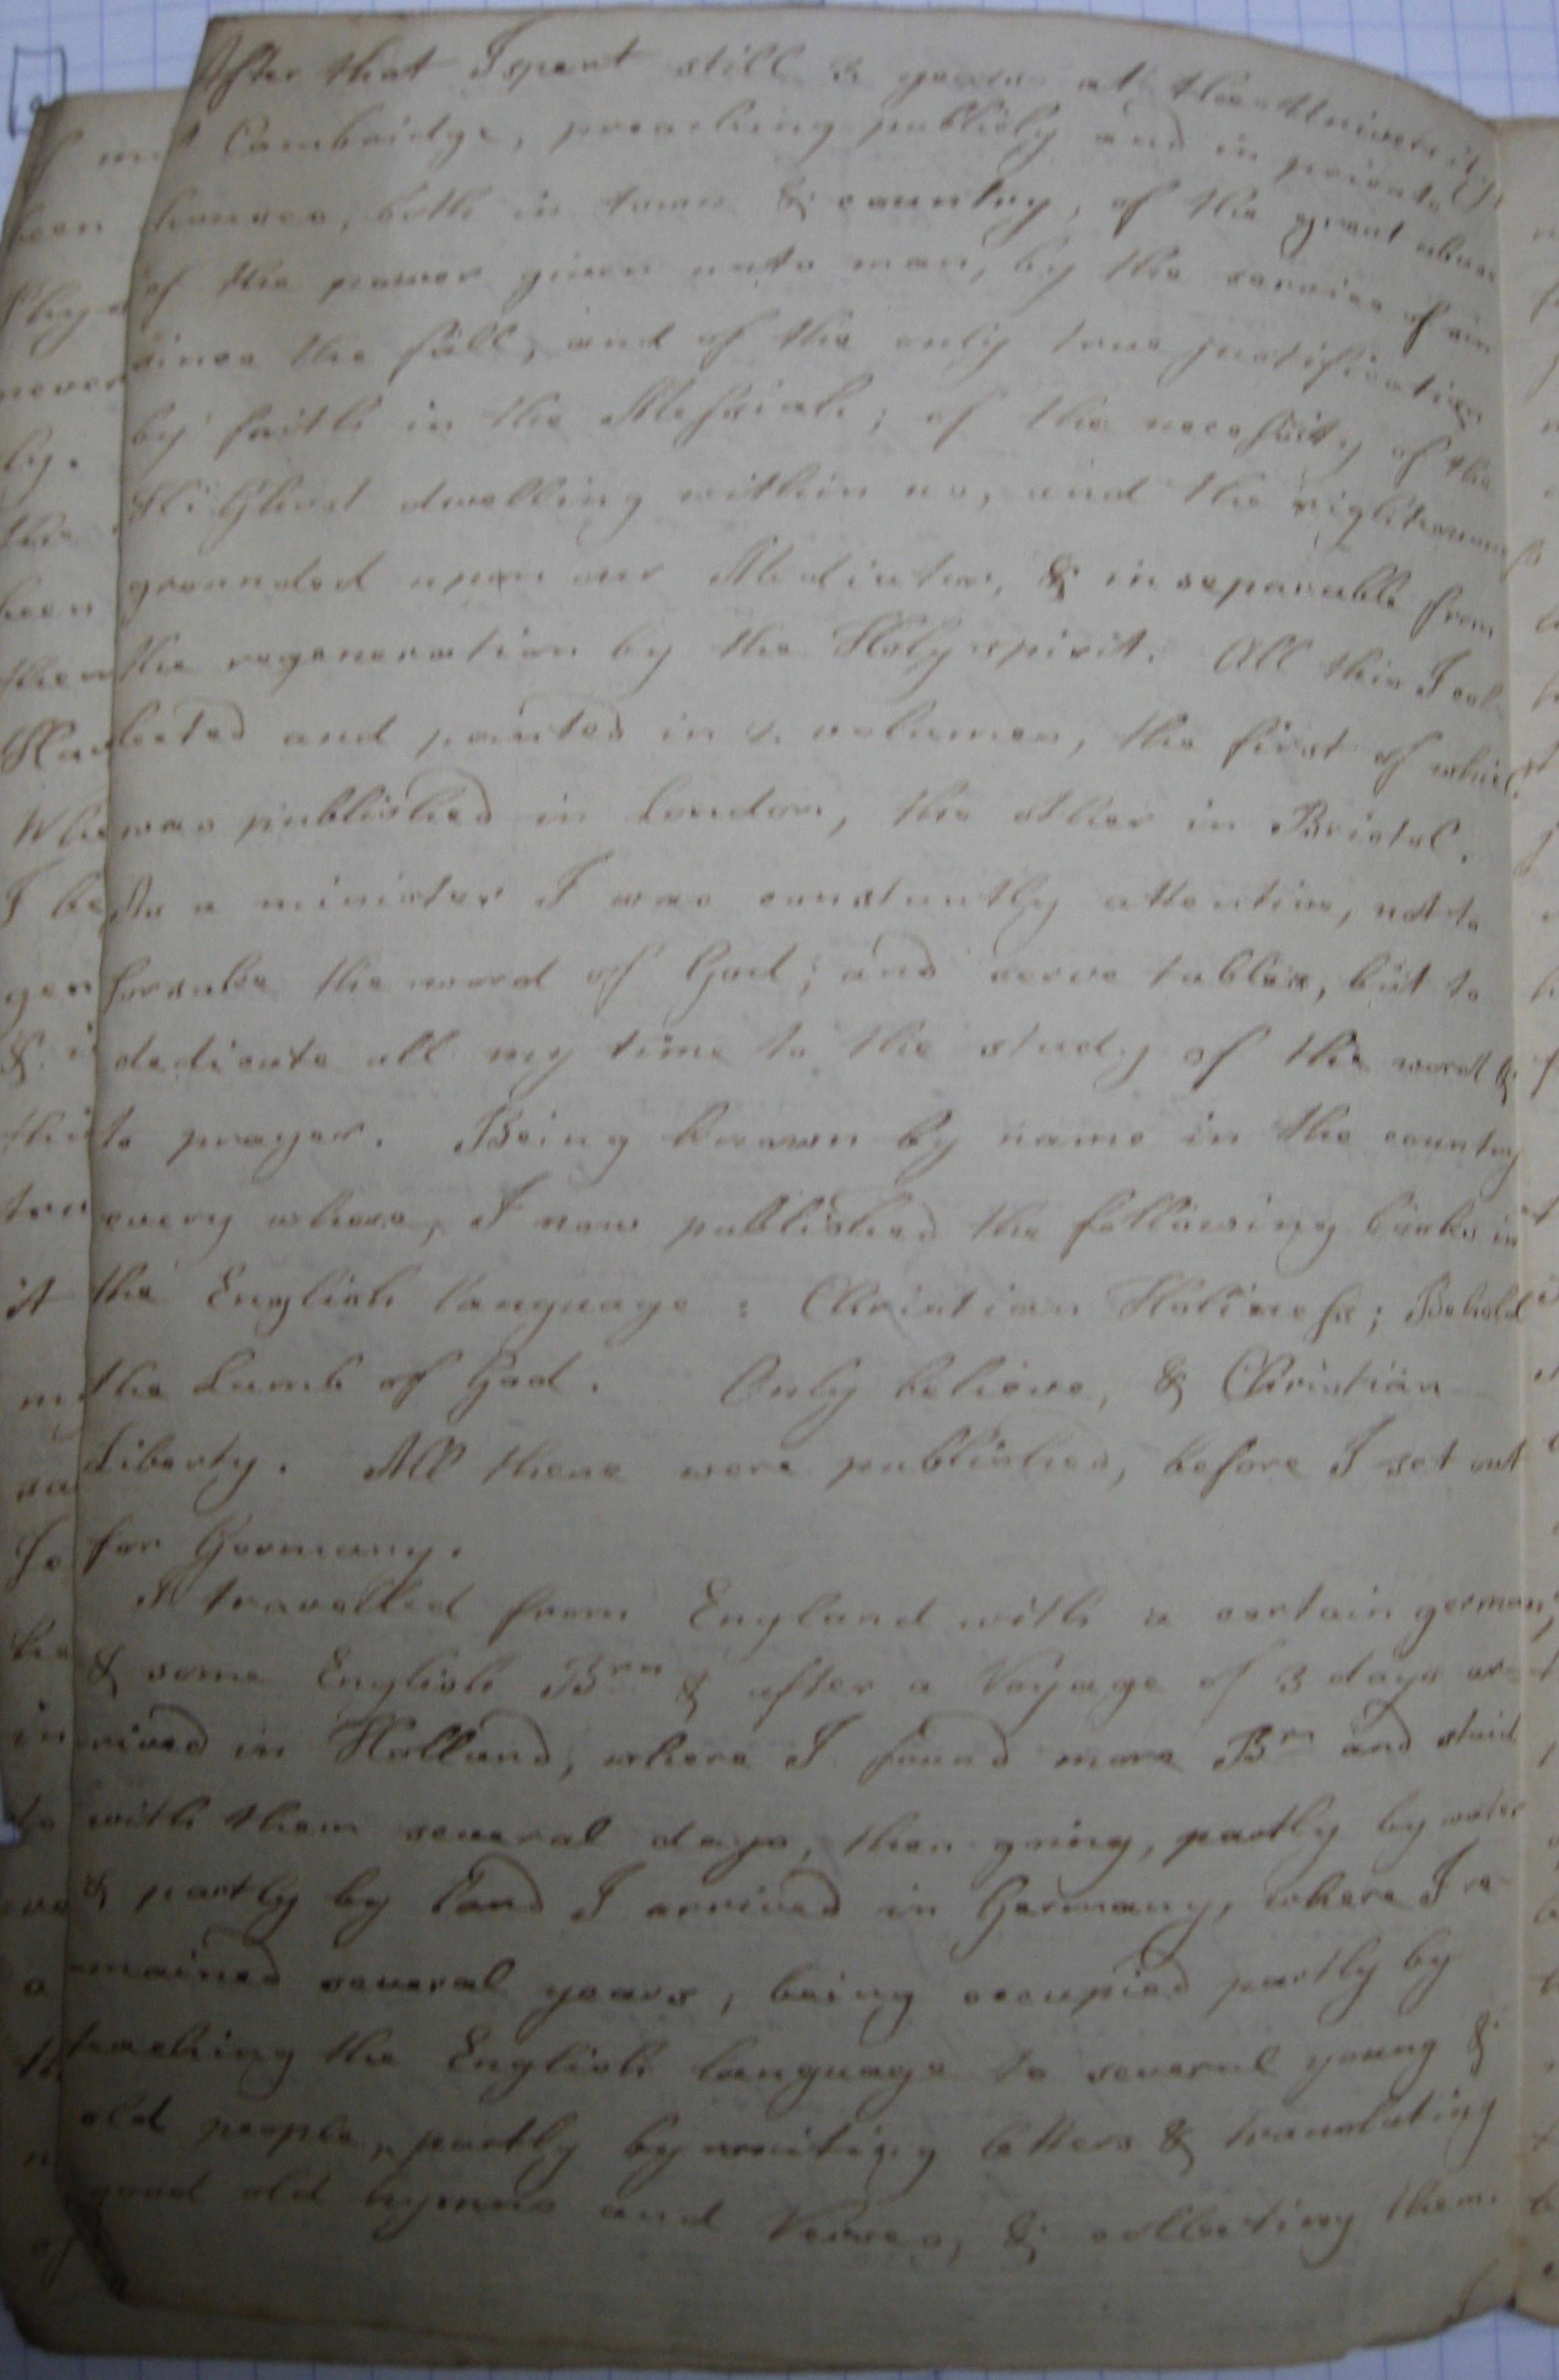 After that I spent still 3 years at the University
Cambridge, preaching publicly and in private
houses, both in town & country, of the great abuse
of the power given unto man, by the service of sin
since the fall, and of the only true justification
by faith in the Meſsiah; of the neceſsity of the
H. Ghost dwelling within us, and the righteousneſs
grounded upon our Mediator, & inseparable from
the regeneration by the Holy spirit. All this I col-
lected and printed in 2 volumes, the first of which
was published in London, the other in Bristol.
As a minister I was constantly attentive, not to
forsake the word of God; and serve tables, but to
dedicate all my time to the study of the word &
to prayer. Being known by name in the country
every where, I now published the following books in
the English language: Christian Holineſs; Behold
the Lamb of God. Only believe, & Christian
Liberty. All these were published, before I set out
for Germany.
I travelled from England with a certain german,
& some English Brn & after a Voyage of 3 days ar-
rived in Holland, where I found more Brn and staid
with them several days, then going, partly by water
& partly by land I arrived in Germany, where I re-
mained several years, being occupied partly by
teaching the English language to several young &
old people, partly by writing letters & translating
good old hymns and Verses, & collecting them.